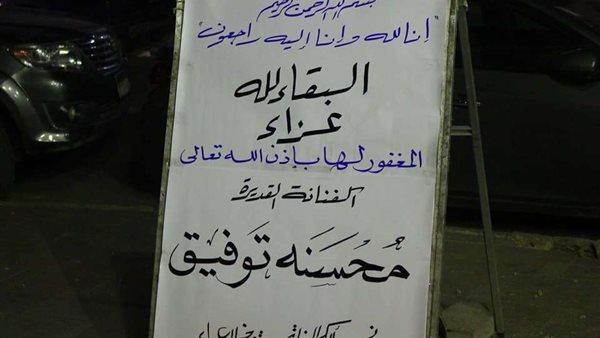 بسم الله الرحمن الرحيم
"إنا لله وإنا إليه راجعون"
البقاء لله
عزاء
المغفور لها بإذن الله تعالى
الفنانة القديرة
مُحسَنه تَوفيق